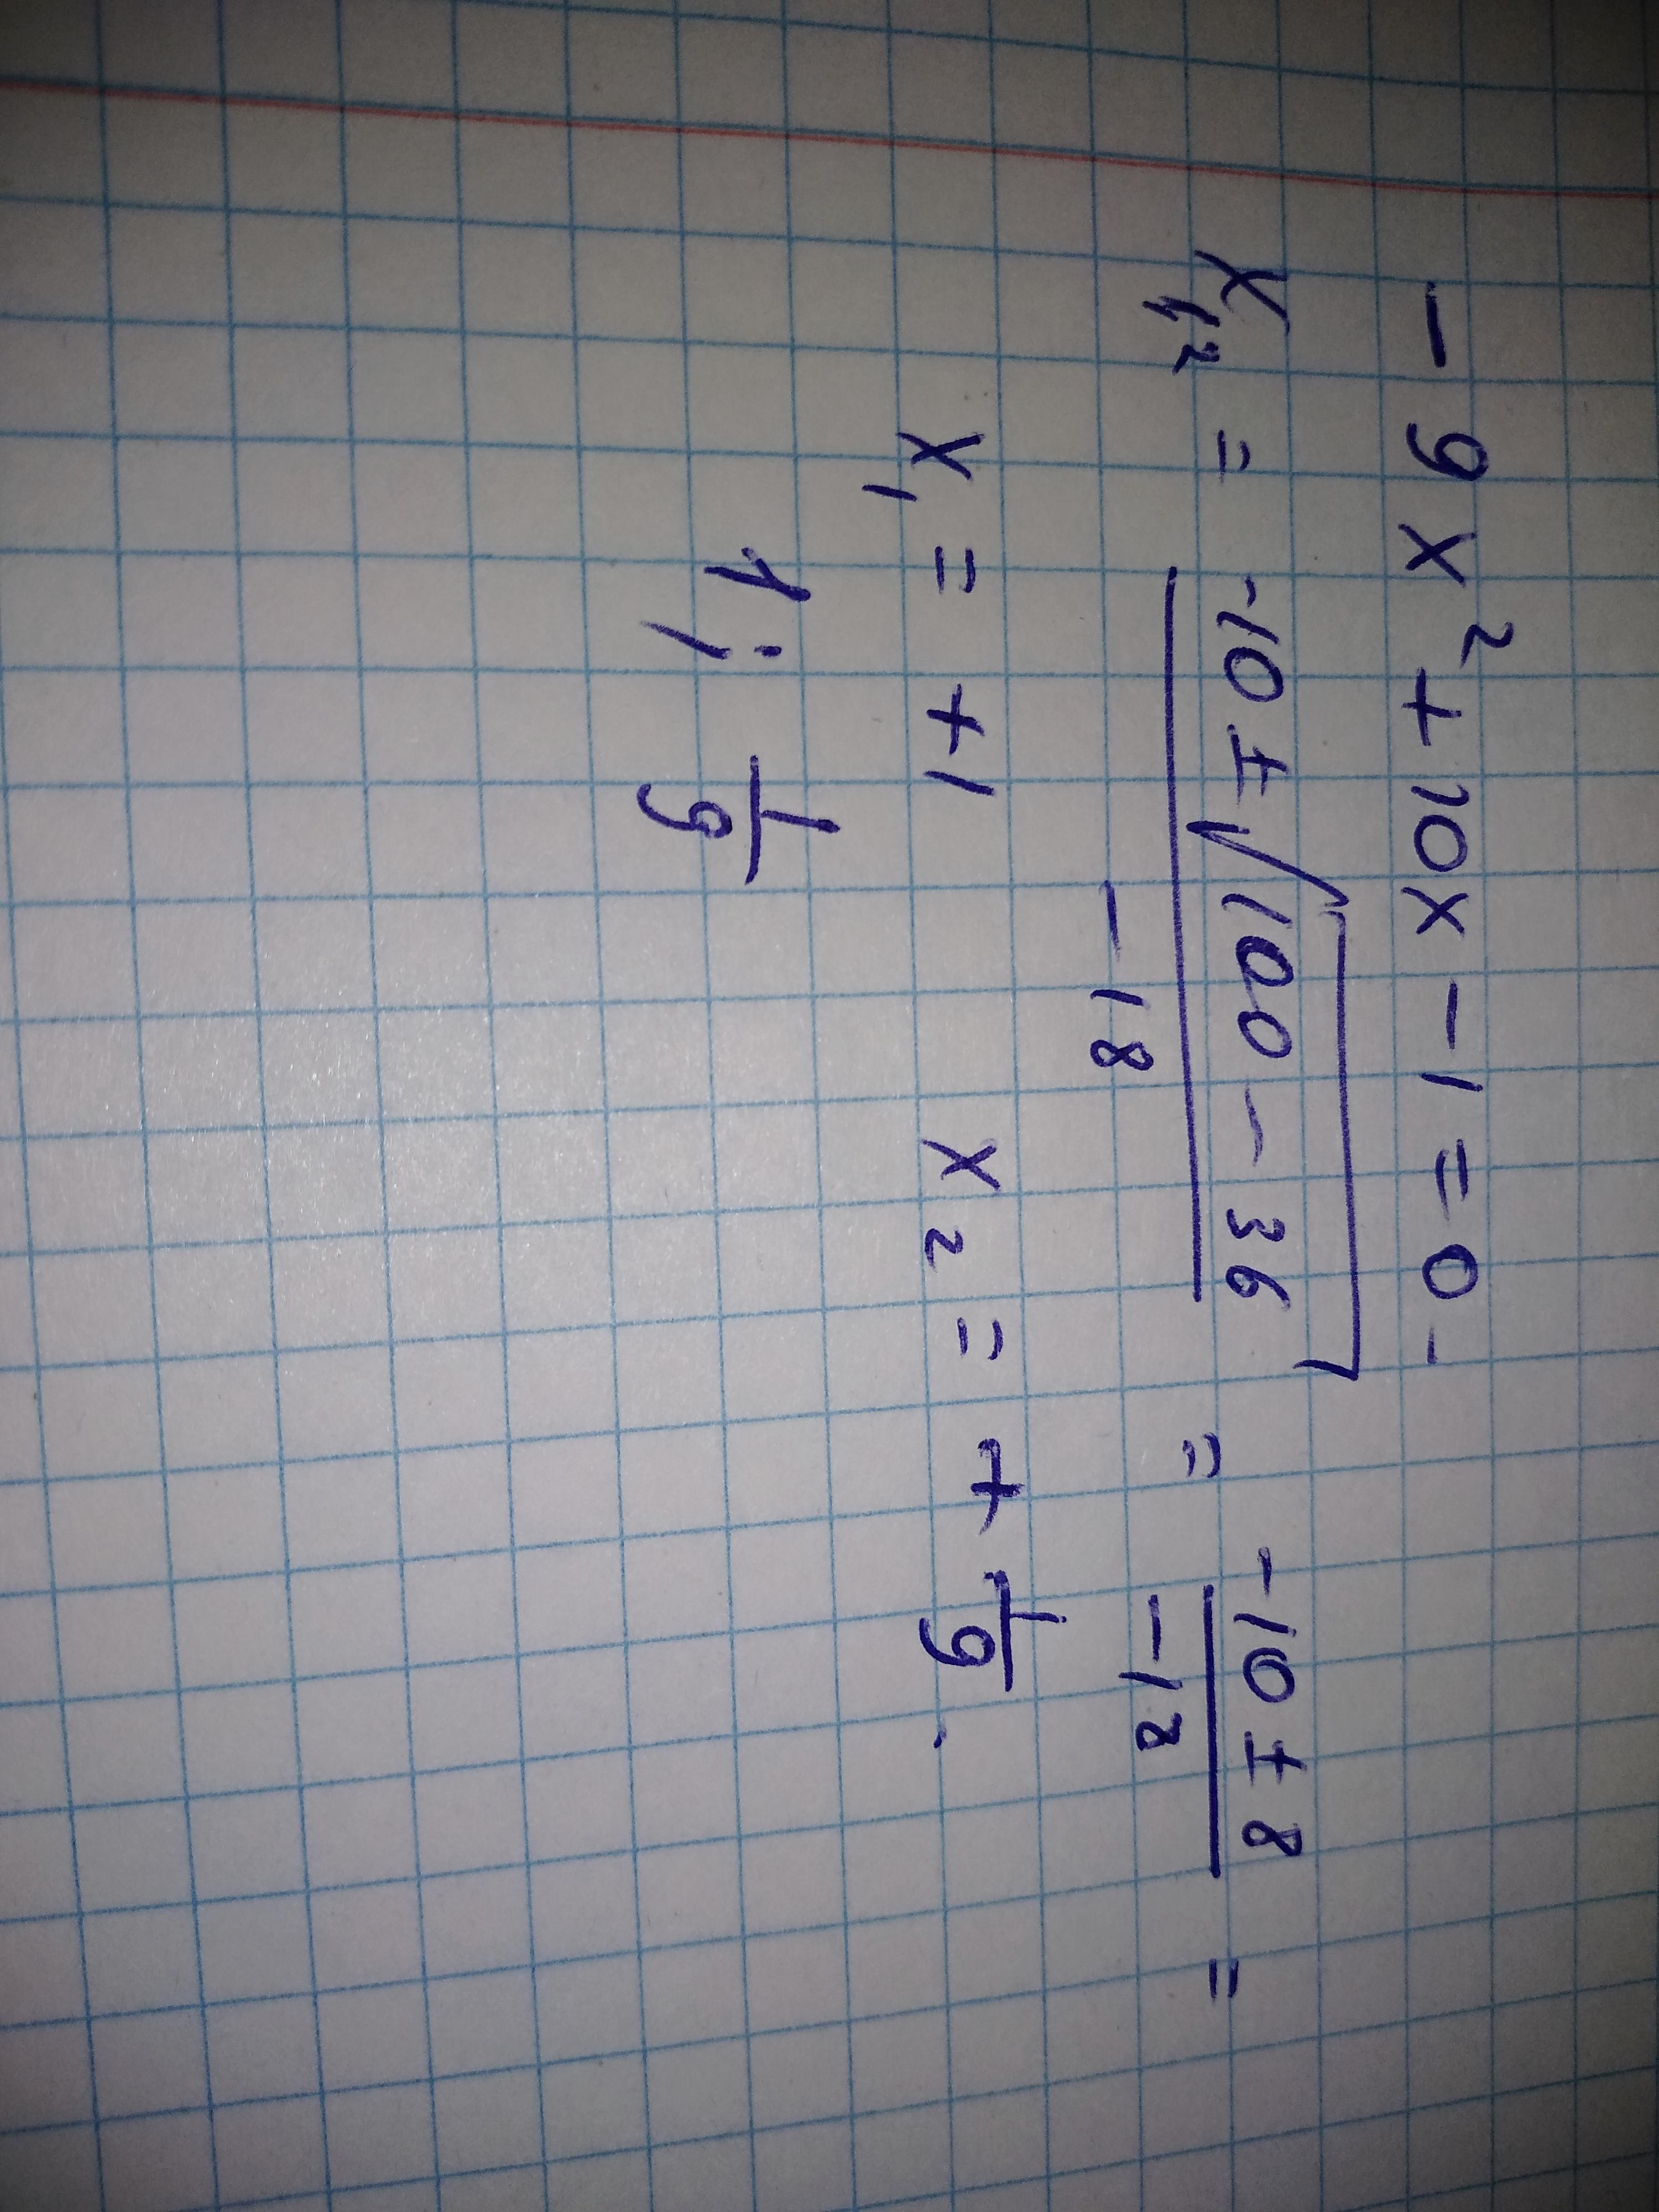 - 9x² + 10x - 1 = 0 -
x₁,₂ = (-10 ± √(100 - 36)) / (-18) = (-10 ± 8) / (-18) =
x₁ = +1 x₂ = + 1/9 .
1 ; 1/9